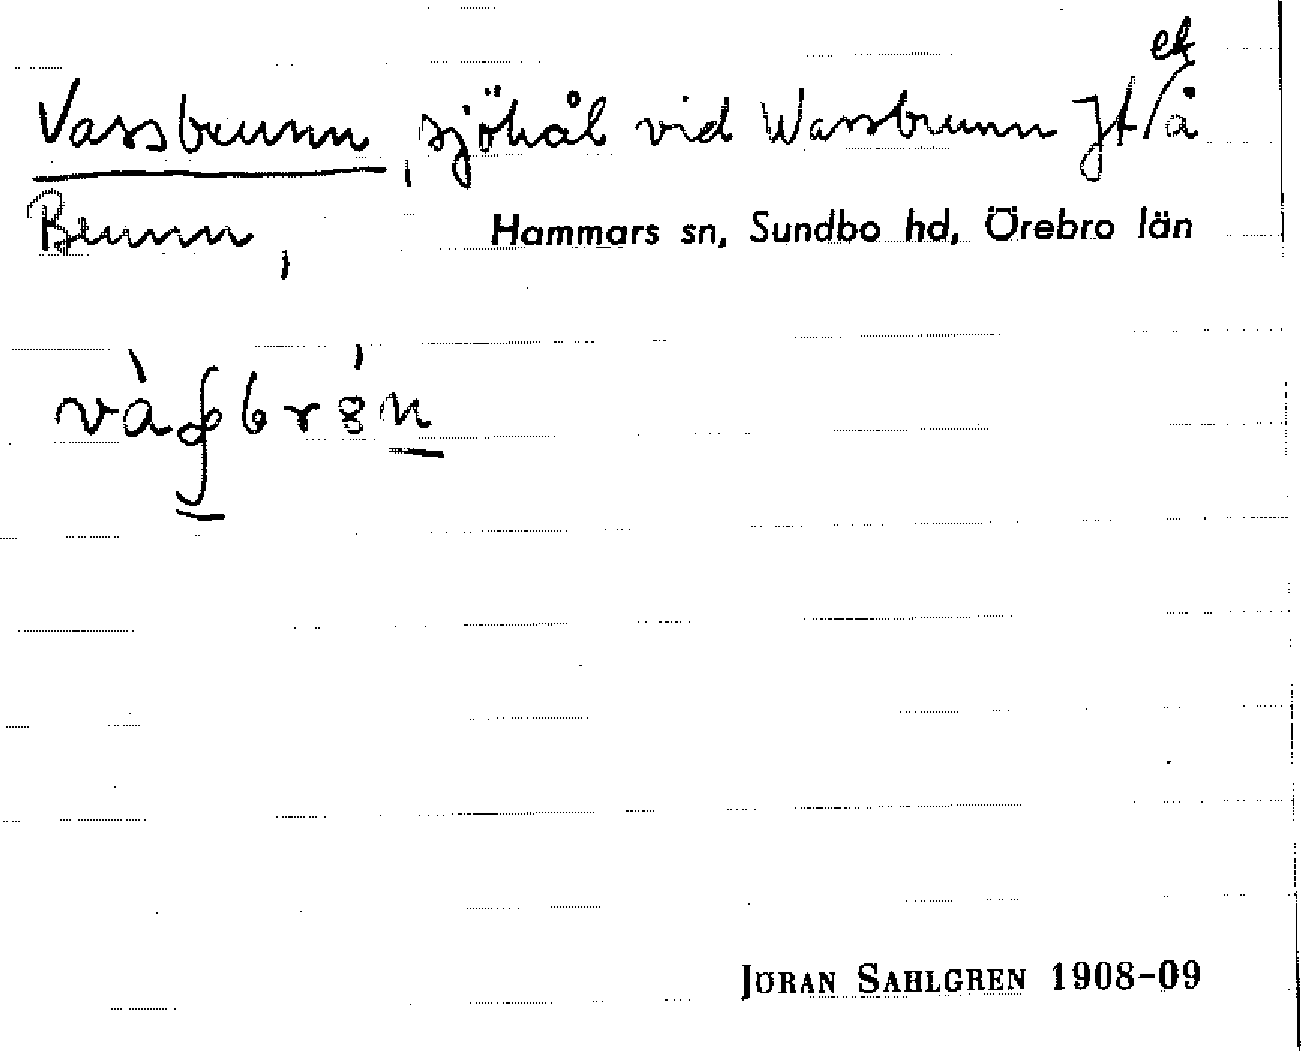 Vassbrunn, sjöhål vid Wassbrunn Jt/å
ek
Brunn,
Hammars sn, Sundbo hd, Örebro län
JÖRAN SAHLGREN 1908-09